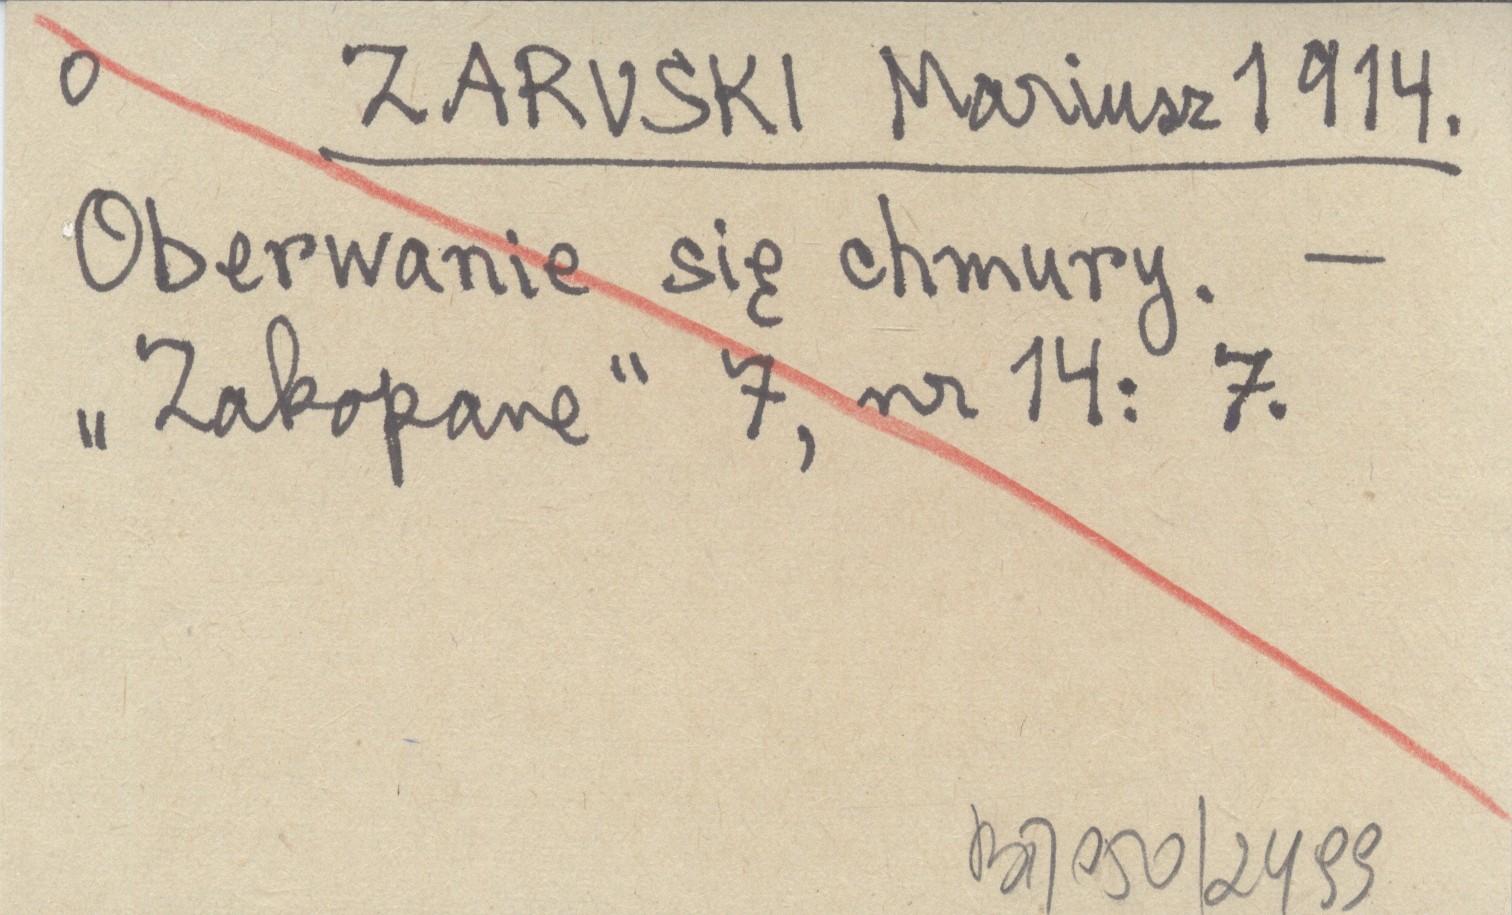 o ZARUSKI Mariusz 1914.
Oberwanie się chmury. —
„Zakopane“ 7, nr 14: 7.
050/2499